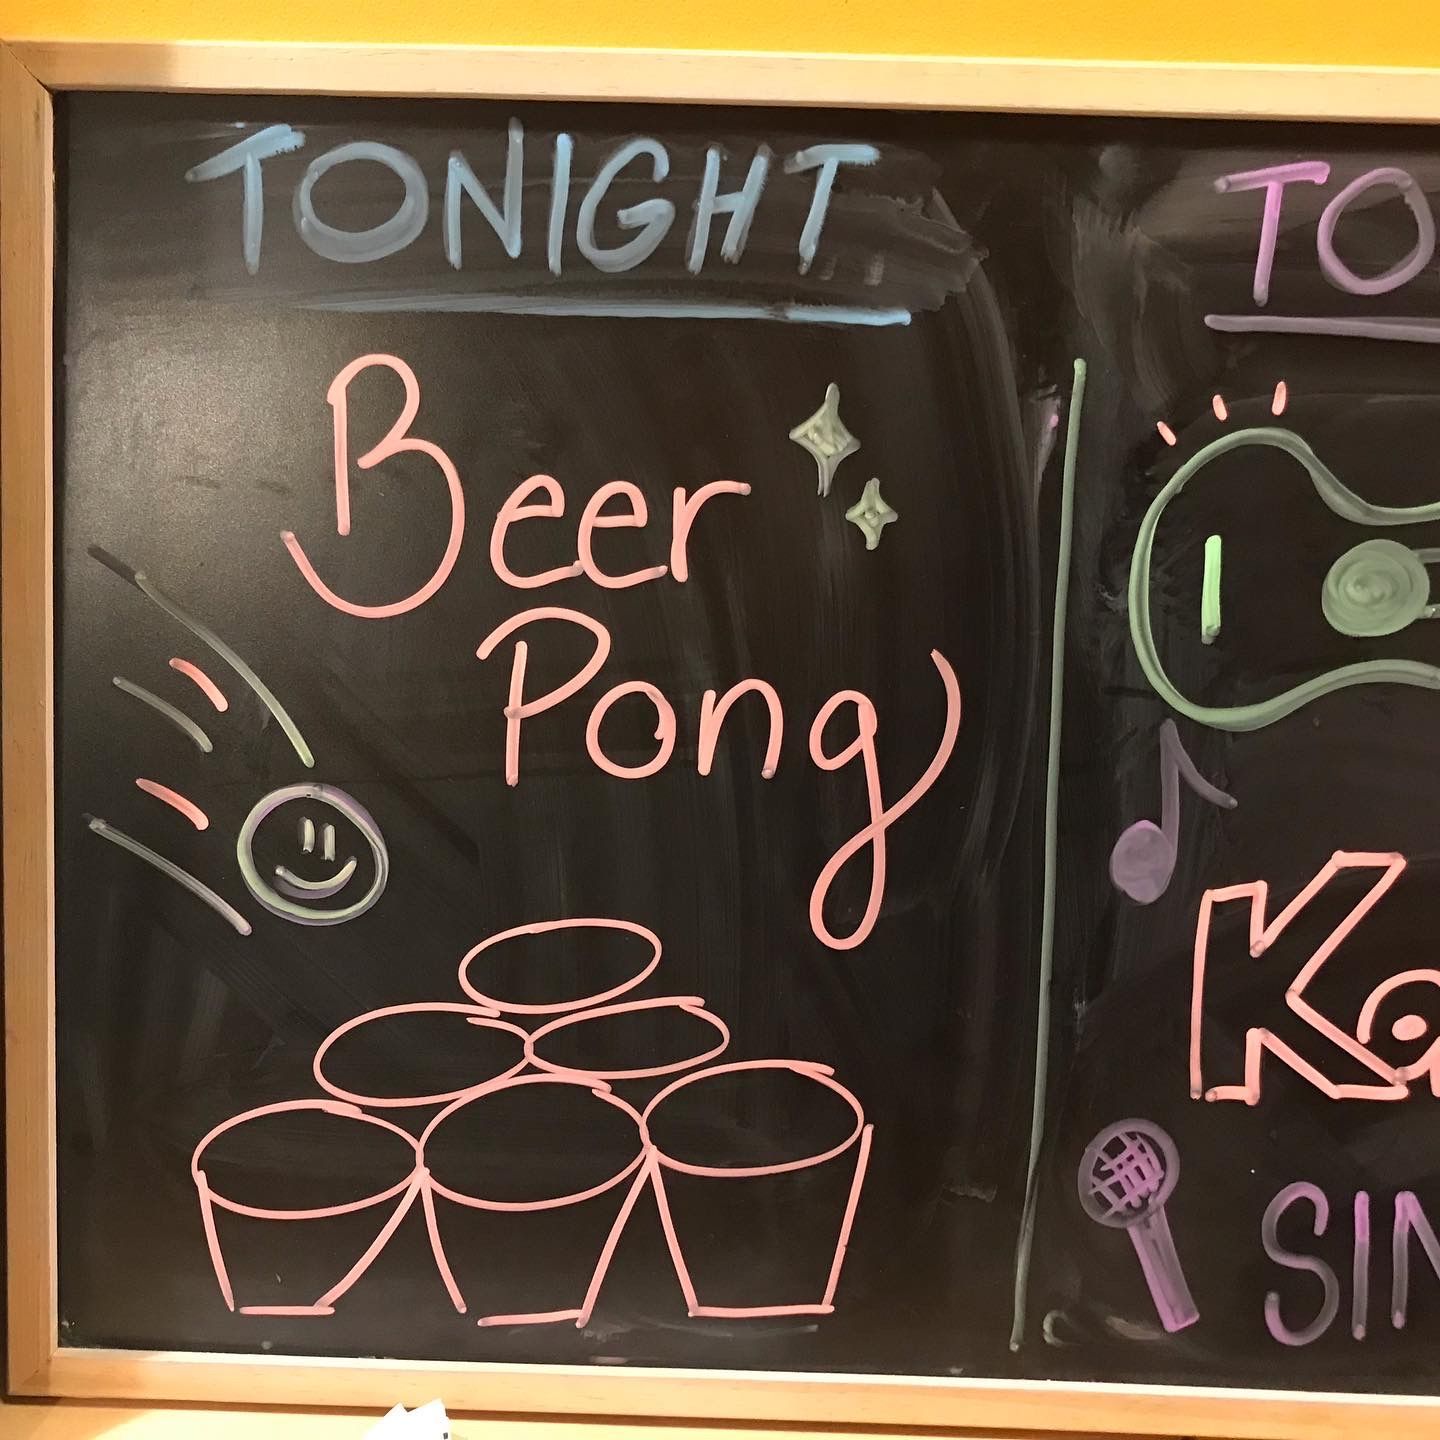 TONIGHT
Beer
Pong
TO
Ka
SIN